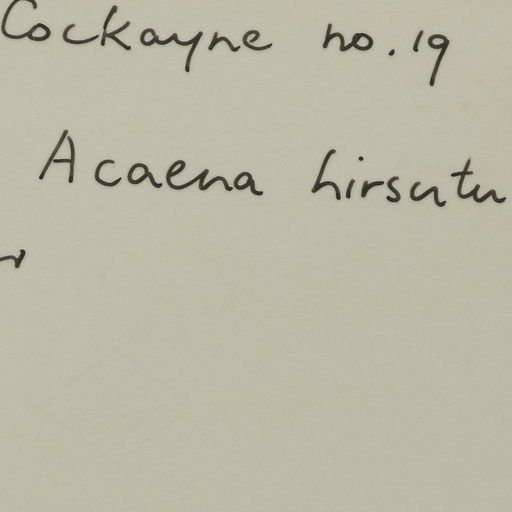 Cockayne no. 19
Acaena hirsutu